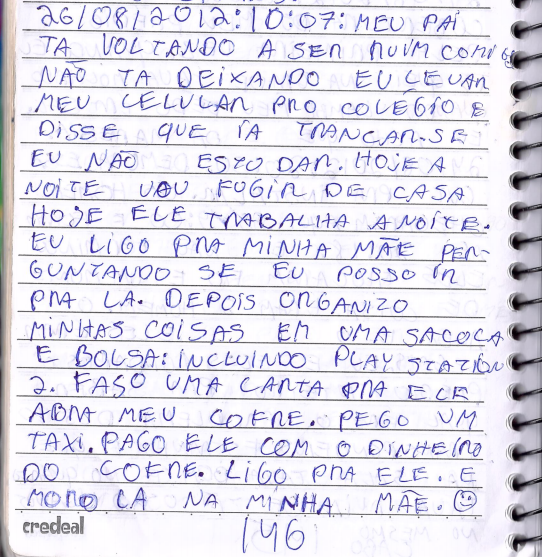 26/08/2012:10:07: MEU PAI
TA VOLTANDO A SER RUUM COMIGO
NÃO TA DEIXANDO EU LEVAR
MEU CELULAR PRO COLÉGIO E
DISSE QUE IA TRANCAR-SE
EU NÃO ESTODAR. HOJE A
NOITE VOU FUGIR DE CASA
HOJE ELE TRABALHA ANOITE.
EU LIGO PRA MINHA MÃE PER-
GUNTANDO SE EU POSSO IR
PRA LA. DEPOIS ORGANIZO
MINHAS COISAS EM UMA SACOCA
E BOLSA: INCLUINDO PLAY STATION
2. FASO UMA CARTA PRA ELE
ABRA MEU COFRE. PEGO UM
TAXI. PAGO ELE COM O DINHEIRO
DO COFRE. LIGO PRA ELE. E
MORO LA NA MINHA MÃE. ☺
credeal 146